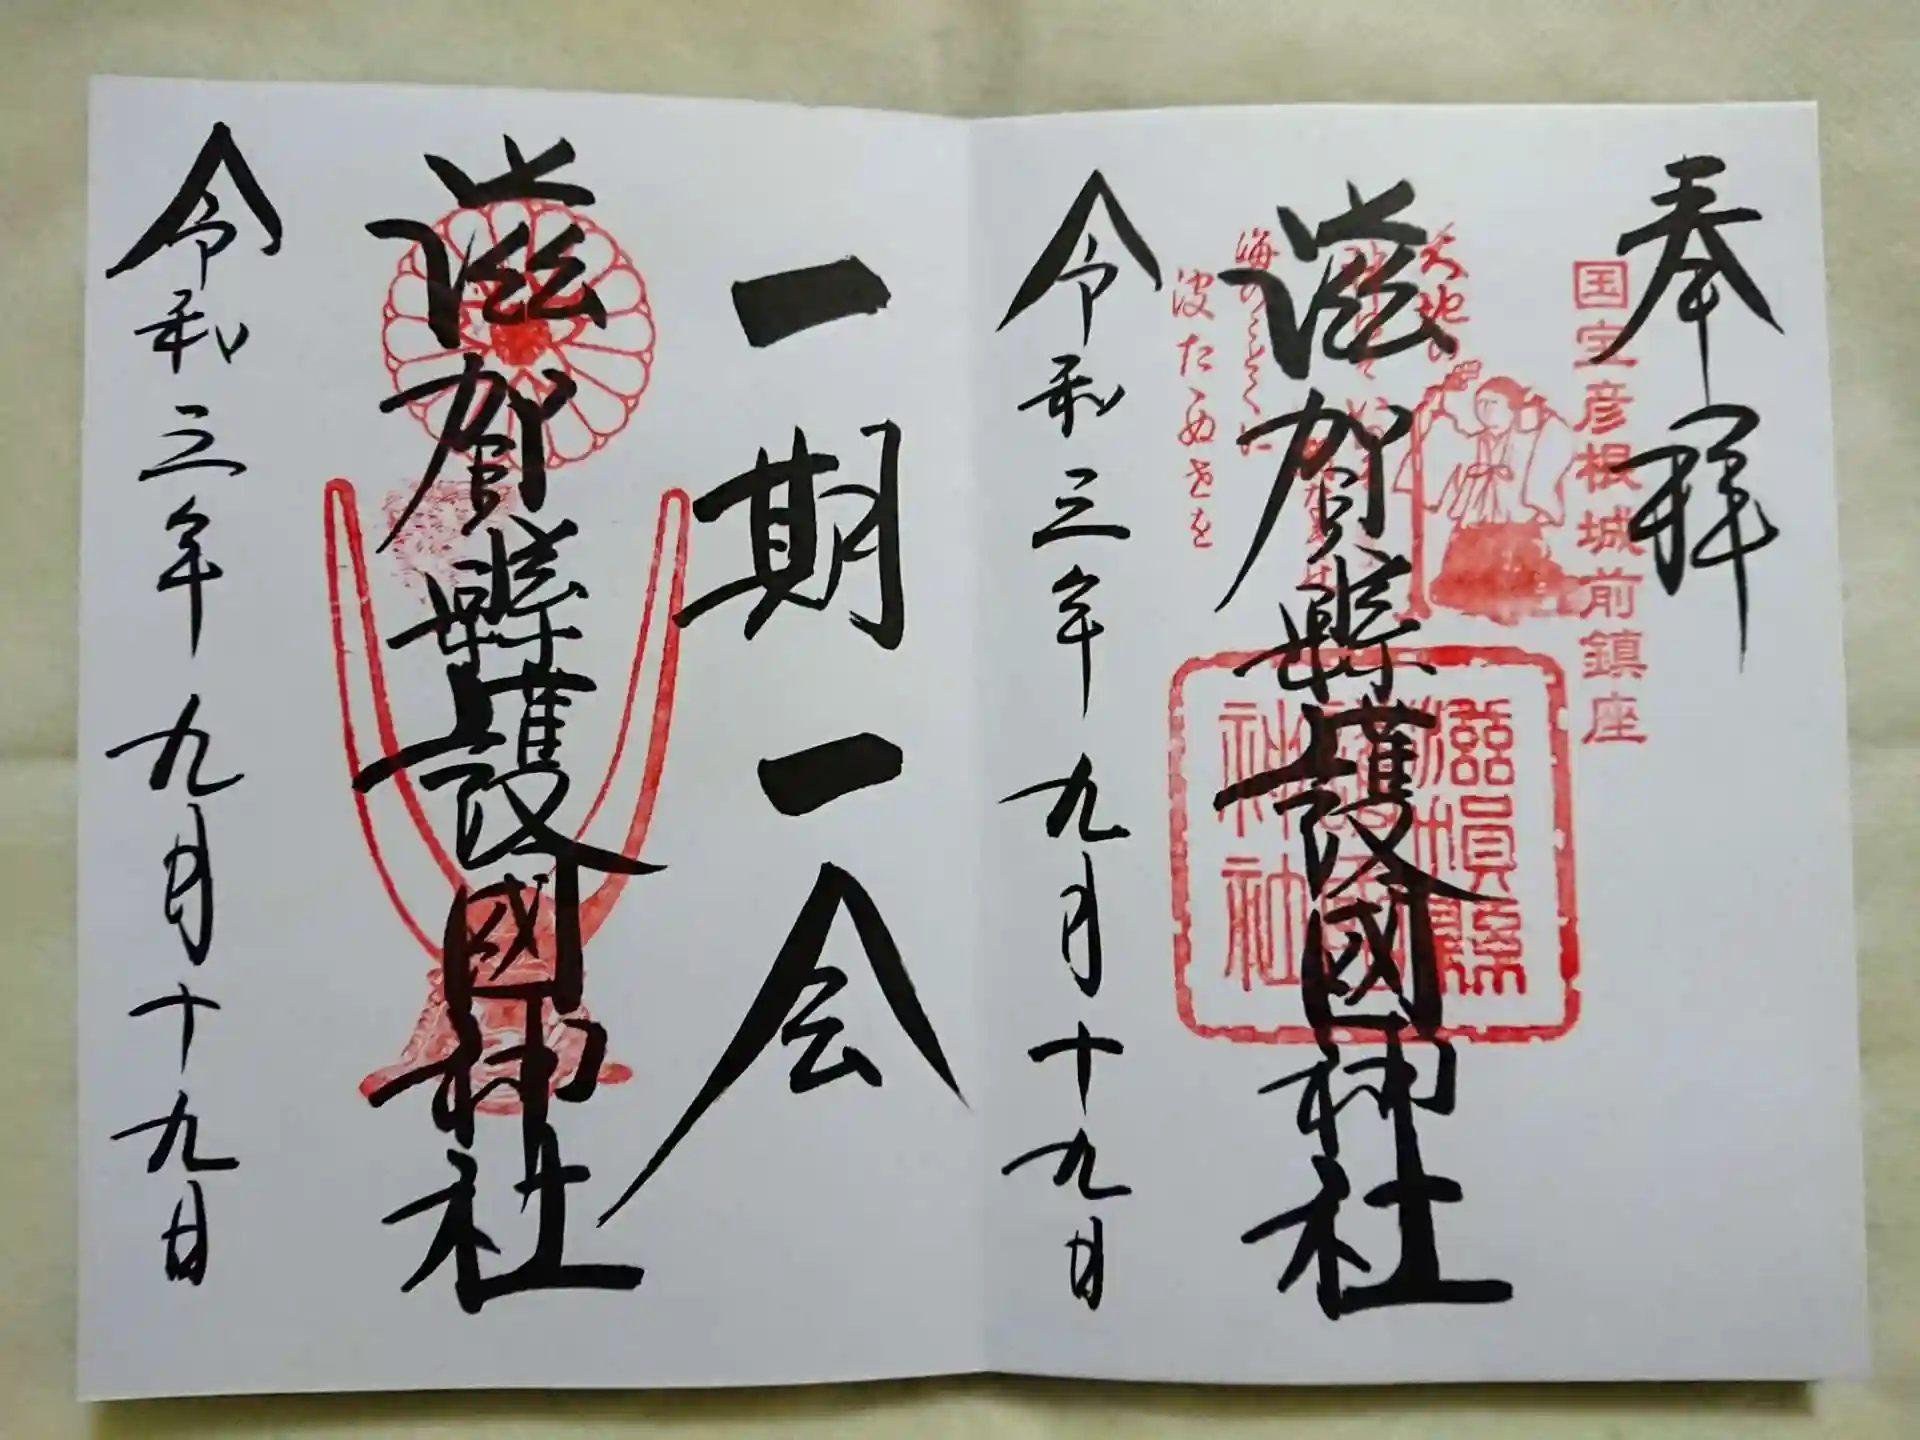 奉拝
国宝彦根城前鎮座
滋賀縣護國神社
滋賀縣護國神社
海のことくに
波たゝぬ世を
令和三年九月十九日
一期一会
滋賀縣護國神社
令和三年九月十九日